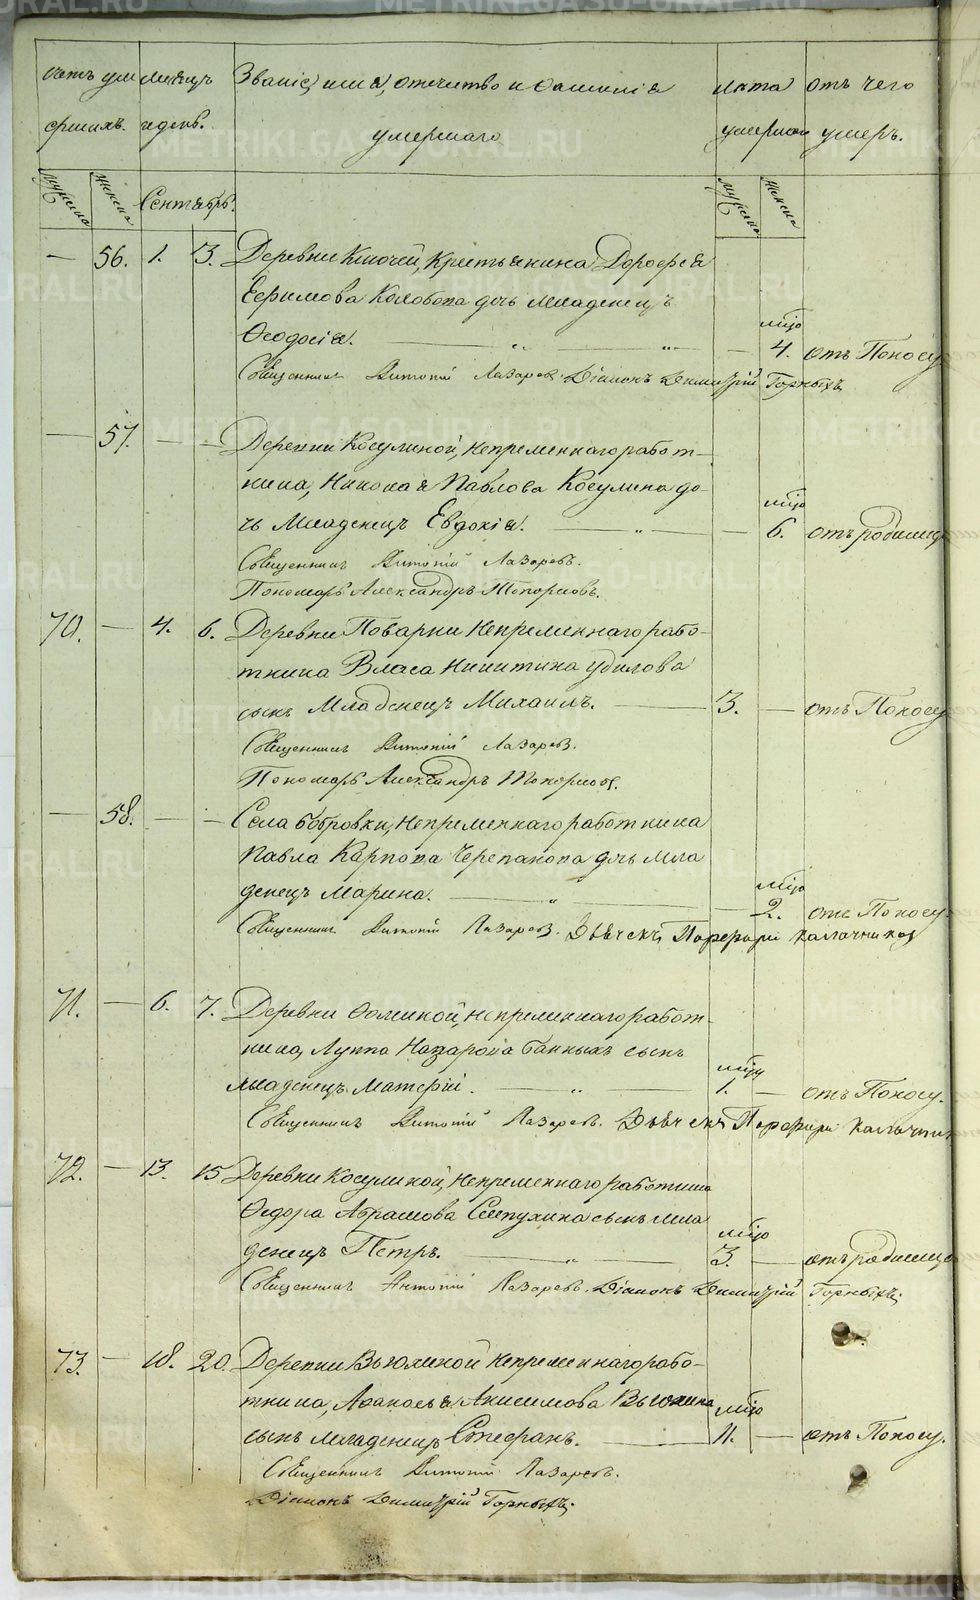 счетъ ум месяцъ Званіе, имя, отечество и Фамилія лѣта отъ чего
ершихъ. и день. умершаго умершаго умеръ.
мужеска женска Сентябрь. мужеска женска
— 56. 1. 3. Деревни Ключей, Крестьянина Дорофея
Ефимова Колобова дочь младенецъ
Ѳеодосія. — „ — „ — 4. отъ Поносу
Священникъ Антоній Лазаревъ. Діаконъ Димитрій Горныхъ
— 57. — — Деревни Косулиной, Непременнаго работ-
ника, Никола Павлова Косулина до-
чь Младенецъ Евдокія. — „ — 6. отъ родимца
Священникъ Антоній Лазаревъ.
Пономарь Александръ Топорковъ.
70. — 4. 6. Деревни Поварни Непременнаго рабо-
тника Власа Никитина Удилова
сынъ Младенецъ Михаилъ. — 3. — отъ Поносу
Священникъ Антоній Лазаревъ.
Пономарь Александръ Топорковъ.
— 58. — — Села Бобровки, Непременнаго работника
Павла Карпова Черепанова дочь мла
денецъ Марина. — „ — 2. отъ Поносу.
Священникъ Антоній Лазаревъ. Дьячекъ Порфирій Калачников
71. — 6. 7. Деревни Фоминой, Непременнаго работ-
ника, Луппа Назарова Банныхъ сынъ
младенецъ Матерій. — „ — 1. — отъ Поносу.
Священникъ Антоній Лазаревъ. Дьячекъ Порфирій Калачник
72. — 13. 15 Деревни Косулиной, Непременнаго работника
Ѳедора Абрамова сынъ мла
денецъ Петръ. — „ — 3. — отъ родимца
Священникъ Антоній Лазаревъ. Діаконъ Димитрій Горныхъ;
73. — 18. 20. Деревни Вьюхиной Непременнаго рабо-
тника, Аѳанасья Анисимова Вьюхина
сынъ младенецъ Стефанъ. — 11. — отъ Поносу.
Священникъ Антоній Лазаревъ.
Діаконъ Димитрій Горныхъ;
METRIKI.GASO-URAL.RU